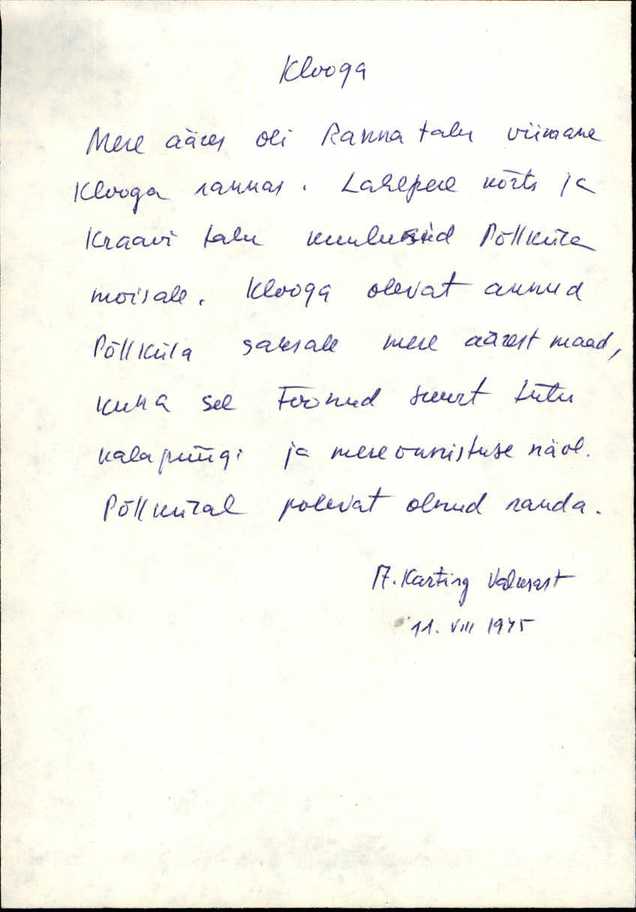 Klooga
Mere ääres oli Ranna talu viimane
Klooga rannas. Lahepere kõrts ja
Kraavi talu kuulusid Põllküla
moisale. Klooga olevat annud
Põllküla saksale mere äärest maad,
kuna see toonud suurt tulu
kalapüügi ja mereõnnistuse näol.
Põllkülal polevat olnud randa.
A. Karting
11. VIII 1975